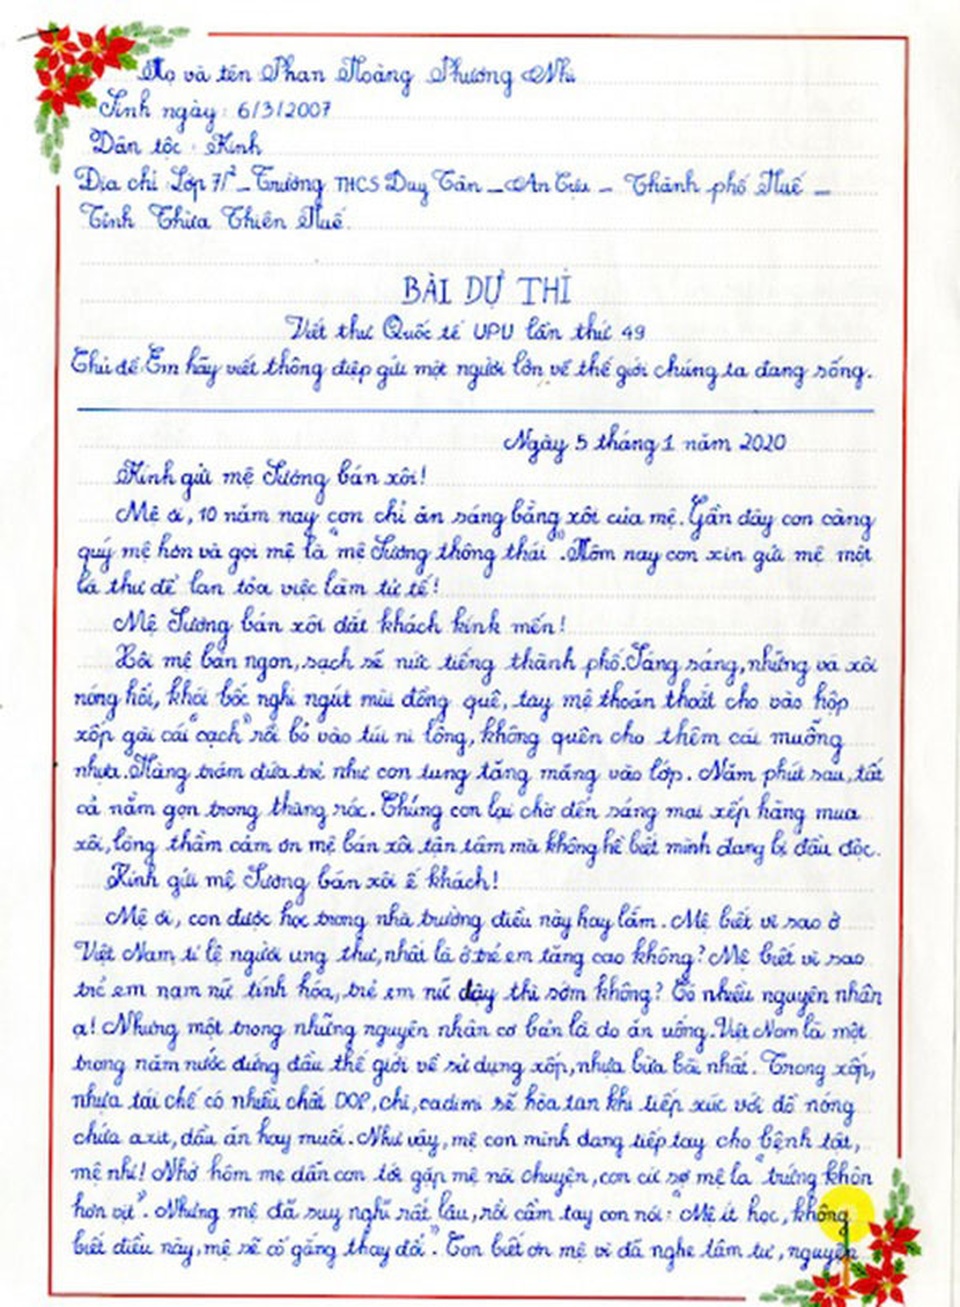 Họ và tên Phan Hoàng Phương Nhi
Sinh ngày: 6/3/2007
Dân tộc: Kinh
Địa chỉ: Lớp 7/2 _ Trường THCS Duy Tân _ An Cựu _ Thành phố Huế _
Tỉnh Thừa Thiên Huế.
BÀI DỰ THI
Viết thư Quốc tế UPU lần thứ 49
Chủ đề: Em hãy viết thông điệp gửi một người lớn về thế giới chúng ta đang sống.
Ngày 5 tháng 1 năm 2020
Kính gửi mệ Sương bán xôi!
Mệ ơi, 10 năm nay con chỉ ăn sáng bằng xôi của mệ. Gần đây con càng
quý mệ hơn và gọi mệ là "mệ Sương thông thái". Hôm nay con xin gửi mệ một
lá thư để lan tỏa việc làm tử tế!
Mệ Sương bán xôi đắt khách kính mến!
Xôi mệ bán ngon, sạch sẽ nức tiếng thành phố. Sáng sáng, những vá xôi
nóng hổi, khói bốc nghi ngút mùi đồng quê, tay mệ thoăn thoắt cho vào hộp
xốp gài cái "cạch" rồi bỏ vào túi ni lông, không quên cho thêm cái muỗng
nhựa. Hàng trăm đứa trẻ như con tung tăng mang vào lớp. Năm phút sau, tất
cả nằm gọn trong thùng rác. Chúng con lại chờ đến sáng mai xếp hàng mua
xôi, lòng thầm cảm ơn mệ bán xôi tận tâm mà không hề biết mình đang bị đầu độc.
Kính gửi mệ Sương bán xôi ế khách!
Mệ ơi, con được học trong nhà trường điều này hay lắm. Mệ biết vì sao ở
Việt Nam, tỉ lệ người ung thư, nhất là ở trẻ em tăng cao không? Mệ biết vì sao
trẻ em nam nữ tính hóa, trẻ em nữ dậy thì sớm không? Có nhiều nguyên nhân
ạ! Nhưng một trong những nguyên nhân cơ bản là do ăn uống. Việt Nam là một
trong năm nước đứng đầu thế giới về sử dụng xốp, nhựa bừa bãi nhất. Trong xốp,
nhựa tái chế có nhiều chất DOP, chì, cadimi sẽ hòa tan khi tiếp xúc với đồ nóng
chứa axit, dầu ăn hay muối. Như vậy, mệ con mình đang tiếp tay cho bệnh tật,
mệ nhỉ! Nhớ hôm mẹ dẫn con tới gặp mệ nói chuyện, con cứ sợ mệ la "trứng khôn
hơn vịt". Nhưng mệ đã suy nghĩ rất lâu, rồi cầm tay con nói: "Mệ ít học, không
biết điều này, mệ sẽ cố gắng thay đổi". Con biết ơn mệ vì đã nghe tâm tư, nguyện